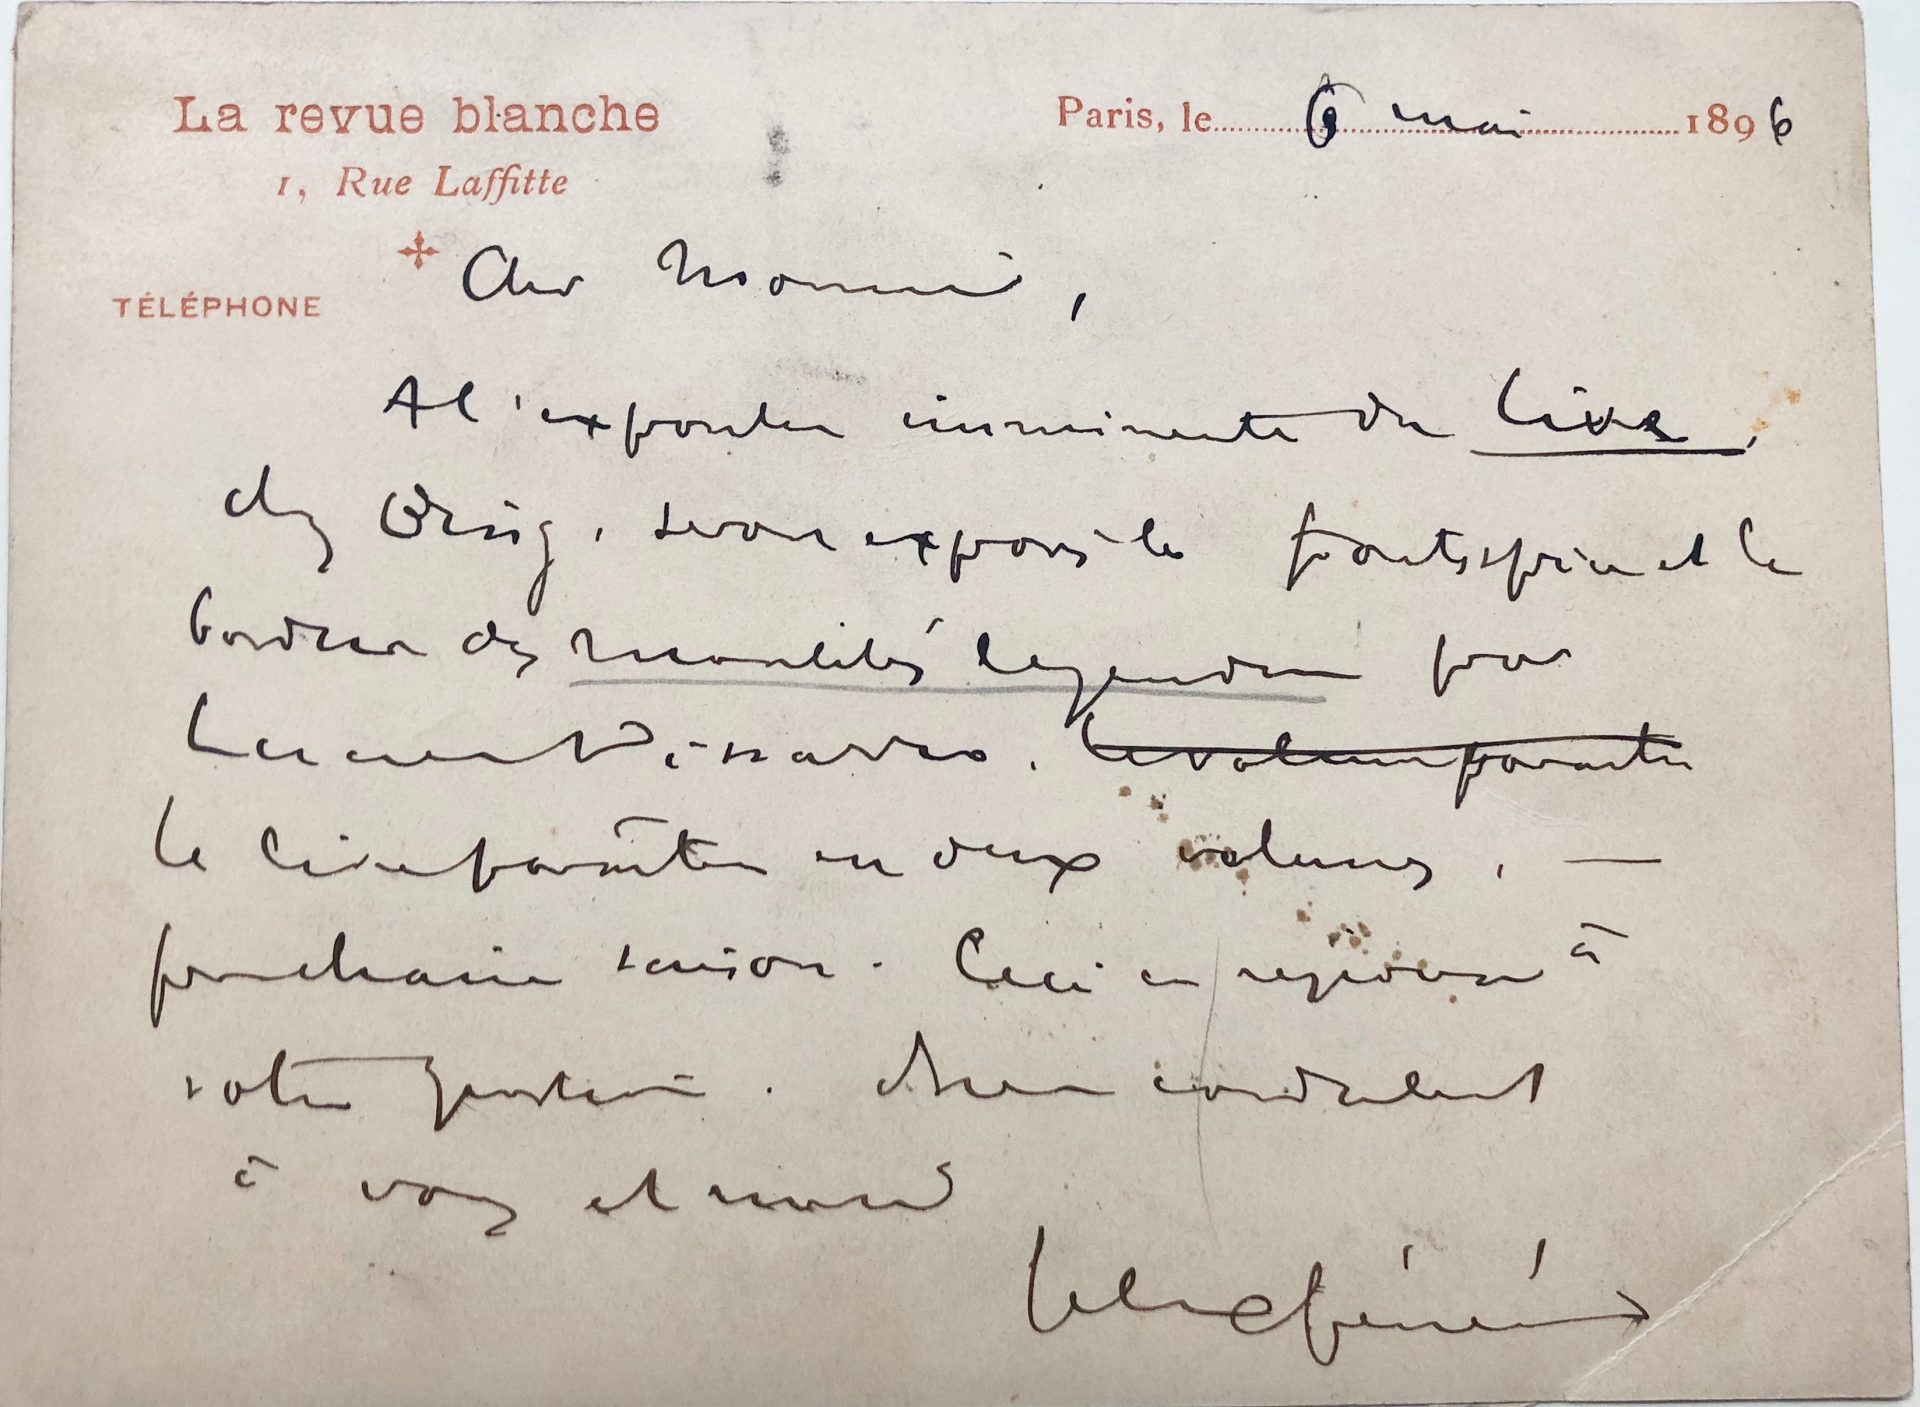 La revue blanche
1, Rue Laffitte
TÉLÉPHONE
Paris, le 6 mai 1896
Cher Monsieur,
A l'exposition imminente du livre,
chez Bing, seront exposés le frontispice et la
bordure des moralités légendaires par
Lucien Pissarro. Le volume paraîtra
Le livre paraîtra en deux volumes, —
prochaine saison. Ceci en réponse à
votre question. Bien cordialement
à vous et merci
Félix Fénéon